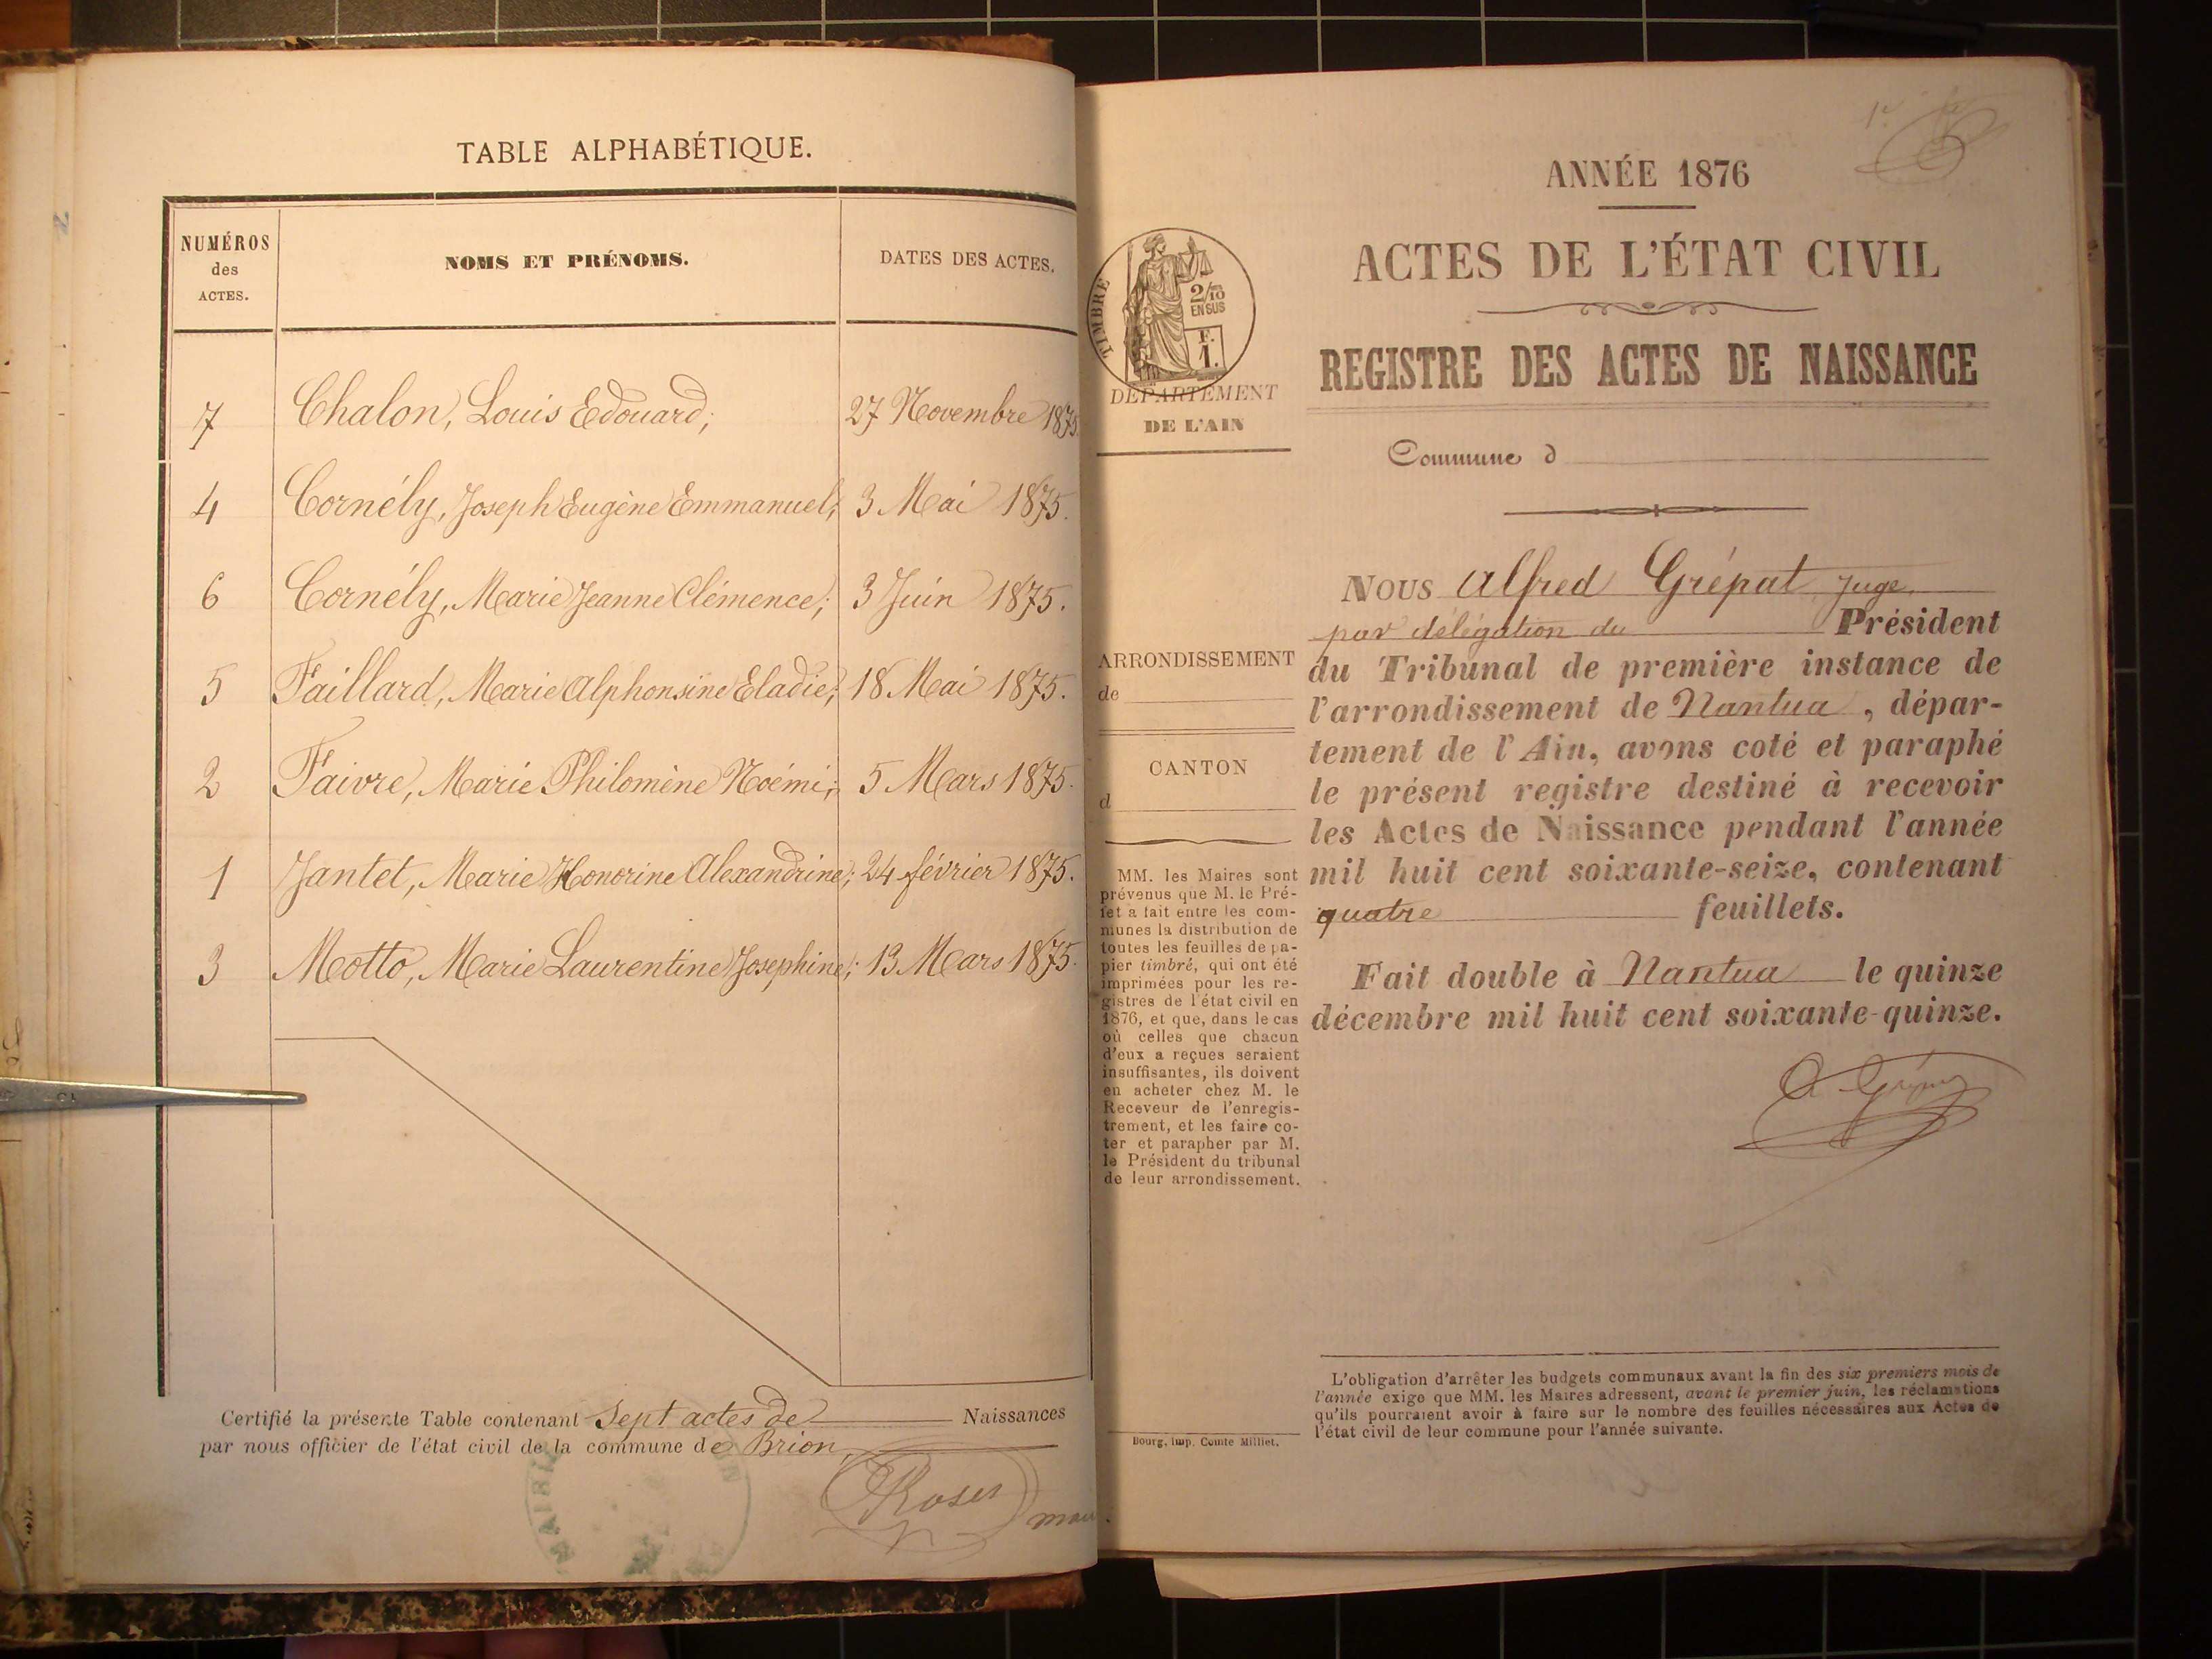 TABLE ALPHABÉTIQUE.
NUMÉROS
des
ACTES.
NOMS ET PRÉNOMS.
DATES DES ACTES.
7 Chalon, Louis Edouard; 27 Novembre 1875
4 Cornély, Joseph Eugène Emmanuel; 3 Mai 1875.
6 Cornély, Marie Jeanne Clémence; 3 Juin 1875.
5 Faillard, Marie Alphonsine Eladie; 18 Mai 1875.
2 Faivre, Marie Philomène Noémi; 5 Mars 1875.
1 Jantet, Marie Honorine Alexandrine; 24 février 1875.
3 Motto, Marie Laurentine Josephine; 13 Mars 1875.
Certifié la présente Table contenant Sept actes de Naissances
par nous officier de l'état civil de la commune de Brion
MAIRIE
1er
ANNÉE 1876
ACTES DE L'ÉTAT CIVIL
REGISTRE DES ACTES DE NAISSANCE
TIMBRE
2/10
EN SUS
F.
1.
DÉPARTEMENT
DE L'AIN
Commune d
ARRONDISSEMENT
de
CANTON
d
MM. les Maires sont
prévenus que M. le Pré-
fet a fait entre les com-
munes la distribution de
toutes les feuilles de pa-
pier timbré, qui ont été
imprimées pour les re-
gistres de l'état civil en
1876, et que, dans le cas
où celles que chacun
d'eux a reçues seraient
insuffisantes, ils doivent
en acheter chez M. le
Receveur de l'enregis-
trement, et les faire co-
ter et parapher par M.
le Président du tribunal
de leur arrondissement.
Bourg, imp. Comte Milliet.
NOUS Alfred Grépat, Juge,
par délégation du Président
du Tribunal de première instance de
l'arrondissement de Nantua, dépar-
tement de l'Ain, avons coté et paraphé
le présent registre destiné à recevoir
les Actes de Naissance pendant l'année
mil huit cent soixante-seize, contenant
quatre feuillets.
Fait double à Nantua le quinze
décembre mil huit cent soixante-quinze.
L'obligation d'arrêter les budgets communaux avant la fin des six premiers mois de
l'année exige que MM. les Maires adressent, avant le premier juin, les réclamations
qu'ils pourraient avoir à faire sur le nombre des feuilles nécessaires aux Actes de
l'état civil de leur commune pour l'année suivante.